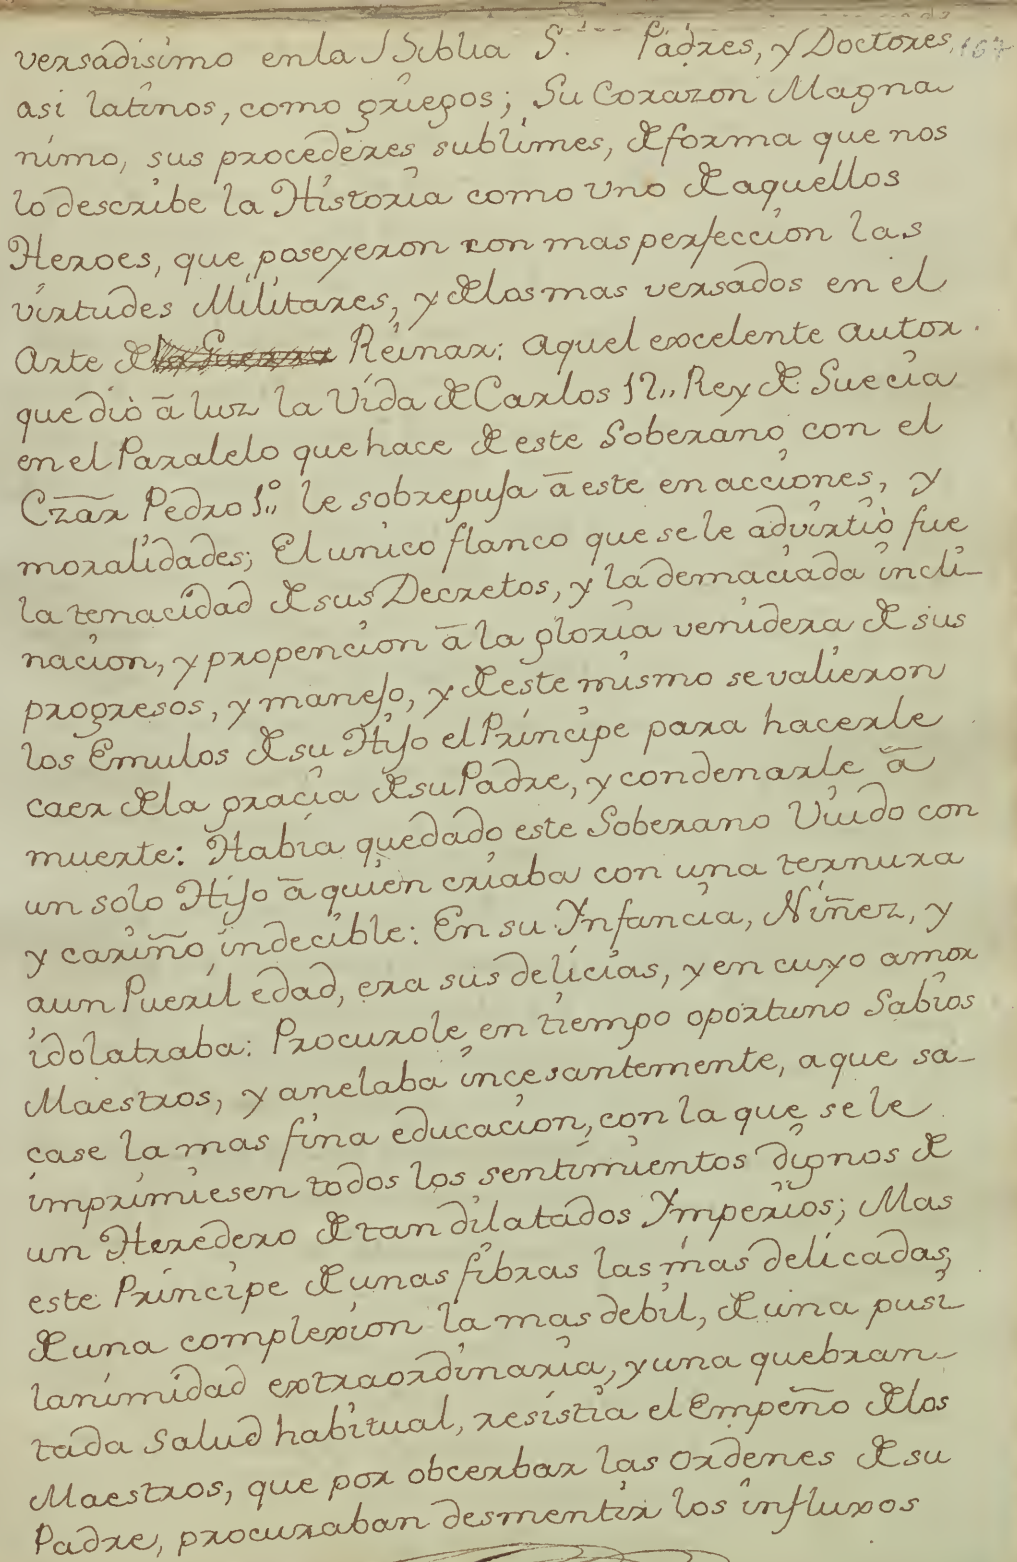 versadisimo en la Biblia S.ˢ Padres, y Doctores 167
asi latinos, como griegos; Su Corazon Magna
nimo, sus procederes sublimes, de forma que nos
lo describe la Historia como uno de aquellos
Heroes, que poseyeron con mas perfeccion las
virtudes Militares, y de los mas versados en el
Arte de la Guerra Reinar: Aquel excelente autor
que diò ā luz la Vida de Carlos 12,, Rey de Suecia
en el Paralelo que hace de este Soberano con el
Czār Pedro 1.º le sobrepuja ā este en acciones, y
moralidades; El unico flanco que se le advirtiò fue
la tenacidad de sus Decretos, y la demaciada incli-
nacion, y propencion ā la gloria venidera de sus
progresos, y manejo, y de este mismo se valieron
los Emulos de su Hijo el Principe para hacerle
caer de la gracia de su Padre, y condenarle ā
muerte: Habia quedado este Soberano Viudo con
un solo Hijo ā quien criaba con una ternura
y cariño indecible: En su Ynfancia, Niñez, y
aun Pueril edad, era sus delicias, y en cuyo amor
idolatraba: Procurole en tiempo oportuno Sabios
Maestros, y anelaba incesantemente, a que sa-
case la mas fina educacion, con la que se le
imprimiesen todos los sentimientos dignos de
un Heredero de tan dilatados Ymperios; Mas
este Principe de unas fibras las mas delicadas,
de una complexion la mas debil, de una pusi
lanimidad extraordinaria, y una quebran-
tada Salud habitual, resistia el Empeño de los
Maestros, que por obcerbar las ordenes de su
Padre, procuraban desmentir los influxos